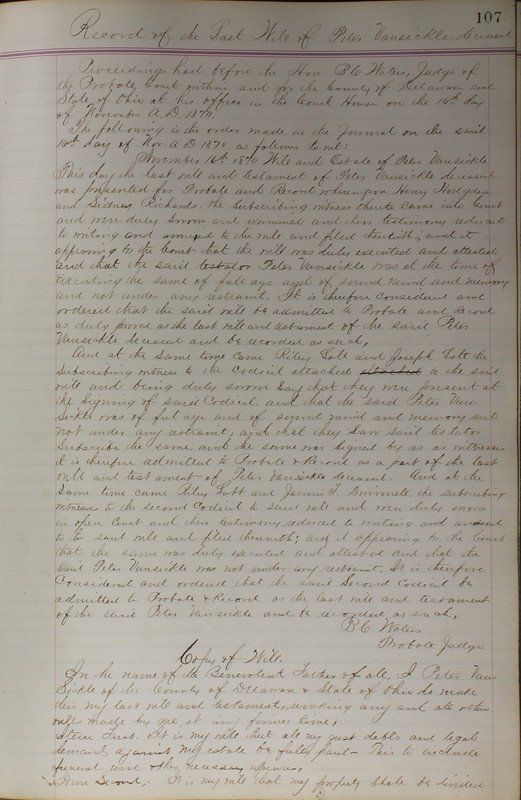 107
Record of the Last Will of Peter Vansickle, deceased
Proceedings had before the Hon B C Waters, Judge of
the Probate Court within and for the County of Delaware and
State of Ohio at his office in the Court House on the 16th day
of November A.D. 1870.
The following is the order made in the Journal on the said
16th day of Nov A.D 1870 as follows to wit:
November 16th 1870 Will and Estate of Peter Vansickle
This day the last will and testament of Peter Vansickle deceased
was presented for Probate and Record whereupon Henry Hodgden
and Sidney Richards the Subscribing witness thereto came into Court
and were duly sworn and examined and their testimony reduced
to writing and annexed to the will and filed therewith; and it
appearing to the Court that the will was duly executed and attested
and that the said testator Peter Vansickle was at the time of
executing the same of full age and of sound mind and memory
and not under any restraint. It is therefore considered and
ordered that the said will be admitted to Probate and Record
as duly proved as the last will and testament of the said Peter
Vansickle deceased and be recorded as such,
And at the same time came Riley Lott and Joseph Lott the
Subscribing witness to the Codicil attached to the said
will and being duly sworn say that they were present at
the Signing of said Codicil and that the said Peter Van
Sickle was of full age and of sound mind and memory and
not under any restraint, and that they saw said testator
Subscribe the same and the same was signed by as as witnesses
it is therefore admitted to Probate & Record as a part of the last
will and testament of Peter Vansickle deceased. And at the
Same time came Riley Lott and James the subscribing
witness to the second Codicil to said will and were duly sworn
in open Court and their testimony reduced to writing and annexed
to the said will and filed therewith; and it appearing to the Court
that the same was duly executed and attested and that the
said Peter Vansickle was not under any restraint. It is therefore
Considered and ordered that the said Second Codicil be
admitted to Probate & Record as the last will and testament
of the said Peter Vansickle and be recorded as such,
B C Waters
Probate Judge
Copy of Will.
In the name of the Benevolent Father of all, I Peter Van
Sickle of the County of Delaware & State of Ohio do make
this my last will and testament, revoking any and all other
wills made by me at any former time,
Item First. It is my will that all my just debts and legal
demands against my estate be fully paid - This to include
funeral and other necessary expenses,
Item Second, - It is my will that my property shall be divided